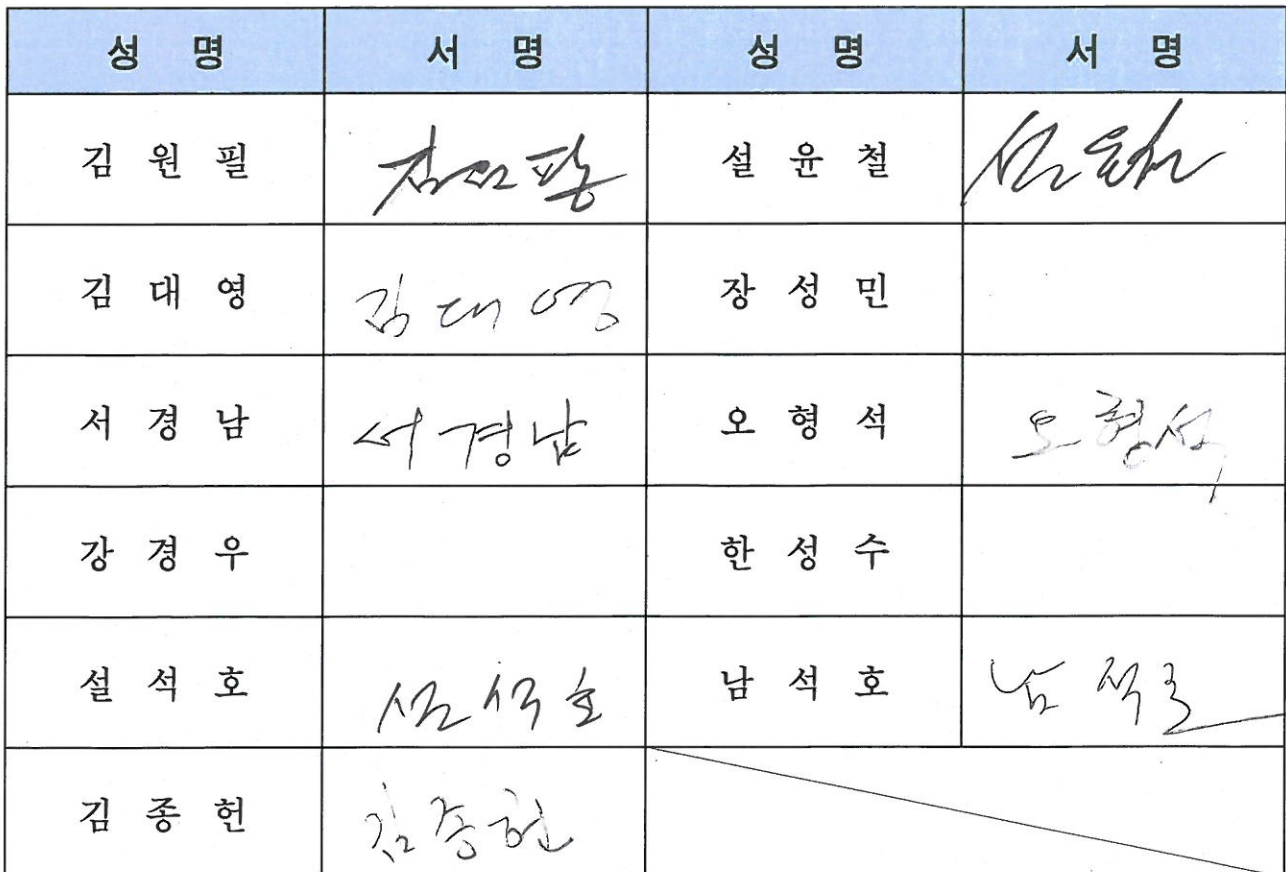 성 명 서 명 성 명 서 명
김 원 필 김원필 설 윤 철 설윤철
김 대 영 김대영 장 성 민
서 경 남 서경남 오 형 석 오형석
강 경 우 한 성 수
설 석 호 설석호 남 석 호 남석호
김 종 헌 김종헌